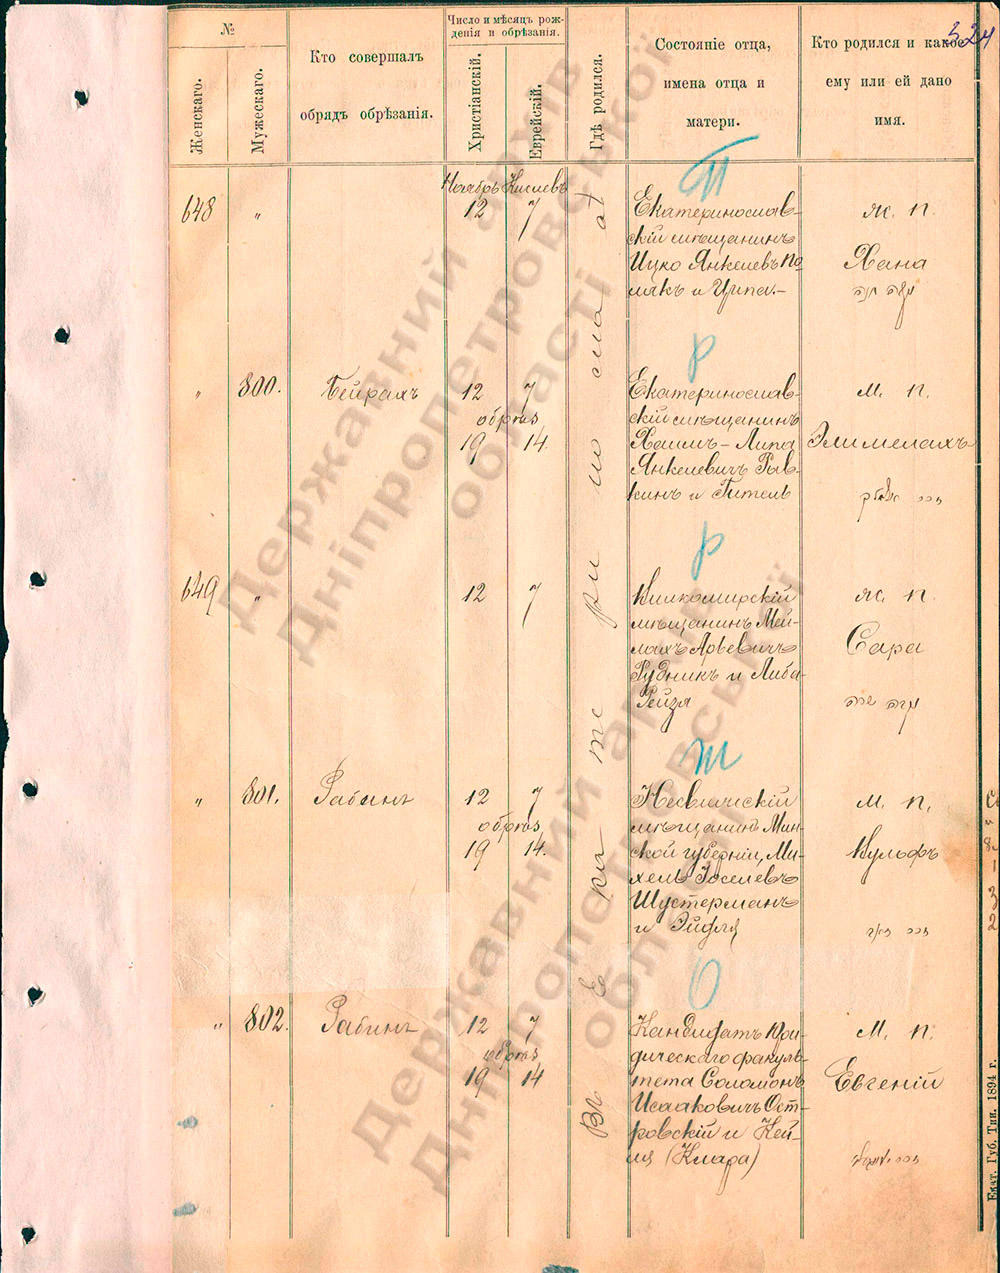 324
№
Женскаго.
Мужескаго.
Кто совершалъ
обрядъ обрѣзанія.
Число и мѣсяцъ рож-
денія и обрѣзанія.
Христіанскій.
Еврейскій.
Гдѣ родился.
Состояніе отца,
имена отца и
матери.
Кто родился и какое
ему или ей дано
имя.
П
Ноябрь Кислевъ
648 „ 12 7
Екатеринослав-
скій мѣщанинъ
Ицко Янкелевъ По
лякъ и Ципа.-
ж. п.
Хана
Р
„ 800. Бейрахъ
12 7
обрѣз
19 14.
Екатеринослав-
скій мѣщанинъ
Хаимъ-Липа
Янкелевичъ Рыв-
кинъ и Гитель
м. п.
Элимелахъ
Р
649 „ 12 7
Вилкомирскій
мѣщанинъ Мей-
лахъ Арьевичъ
Рудникъ и Либа-
Рейзя
ж. п.
Сара
Ш
„ 801. Рабинъ
12 7
обрѣз
19 14.
Несвижскій
мѣщанинъ Мин-
ской губерніи, Ми-
хель Іоселевъ
Шустерманъ
и Эйфля
м. п.
Вульфъ
О
„ 802. Рабинъ
12 7
обрѣз
19 14
Кандидатъ Юри-
дическаго факуль-
тета Соломонъ
Исааковичъ Ост-
ровскій и Кей-
ля (Клара)
м. п.
Евгеній
Въ Екатеринославѣ
Екат. Губ. Тип. 1894 г.
Державний архів
Дніпропетровської
області
Державний архів
Дніпропетровської
області